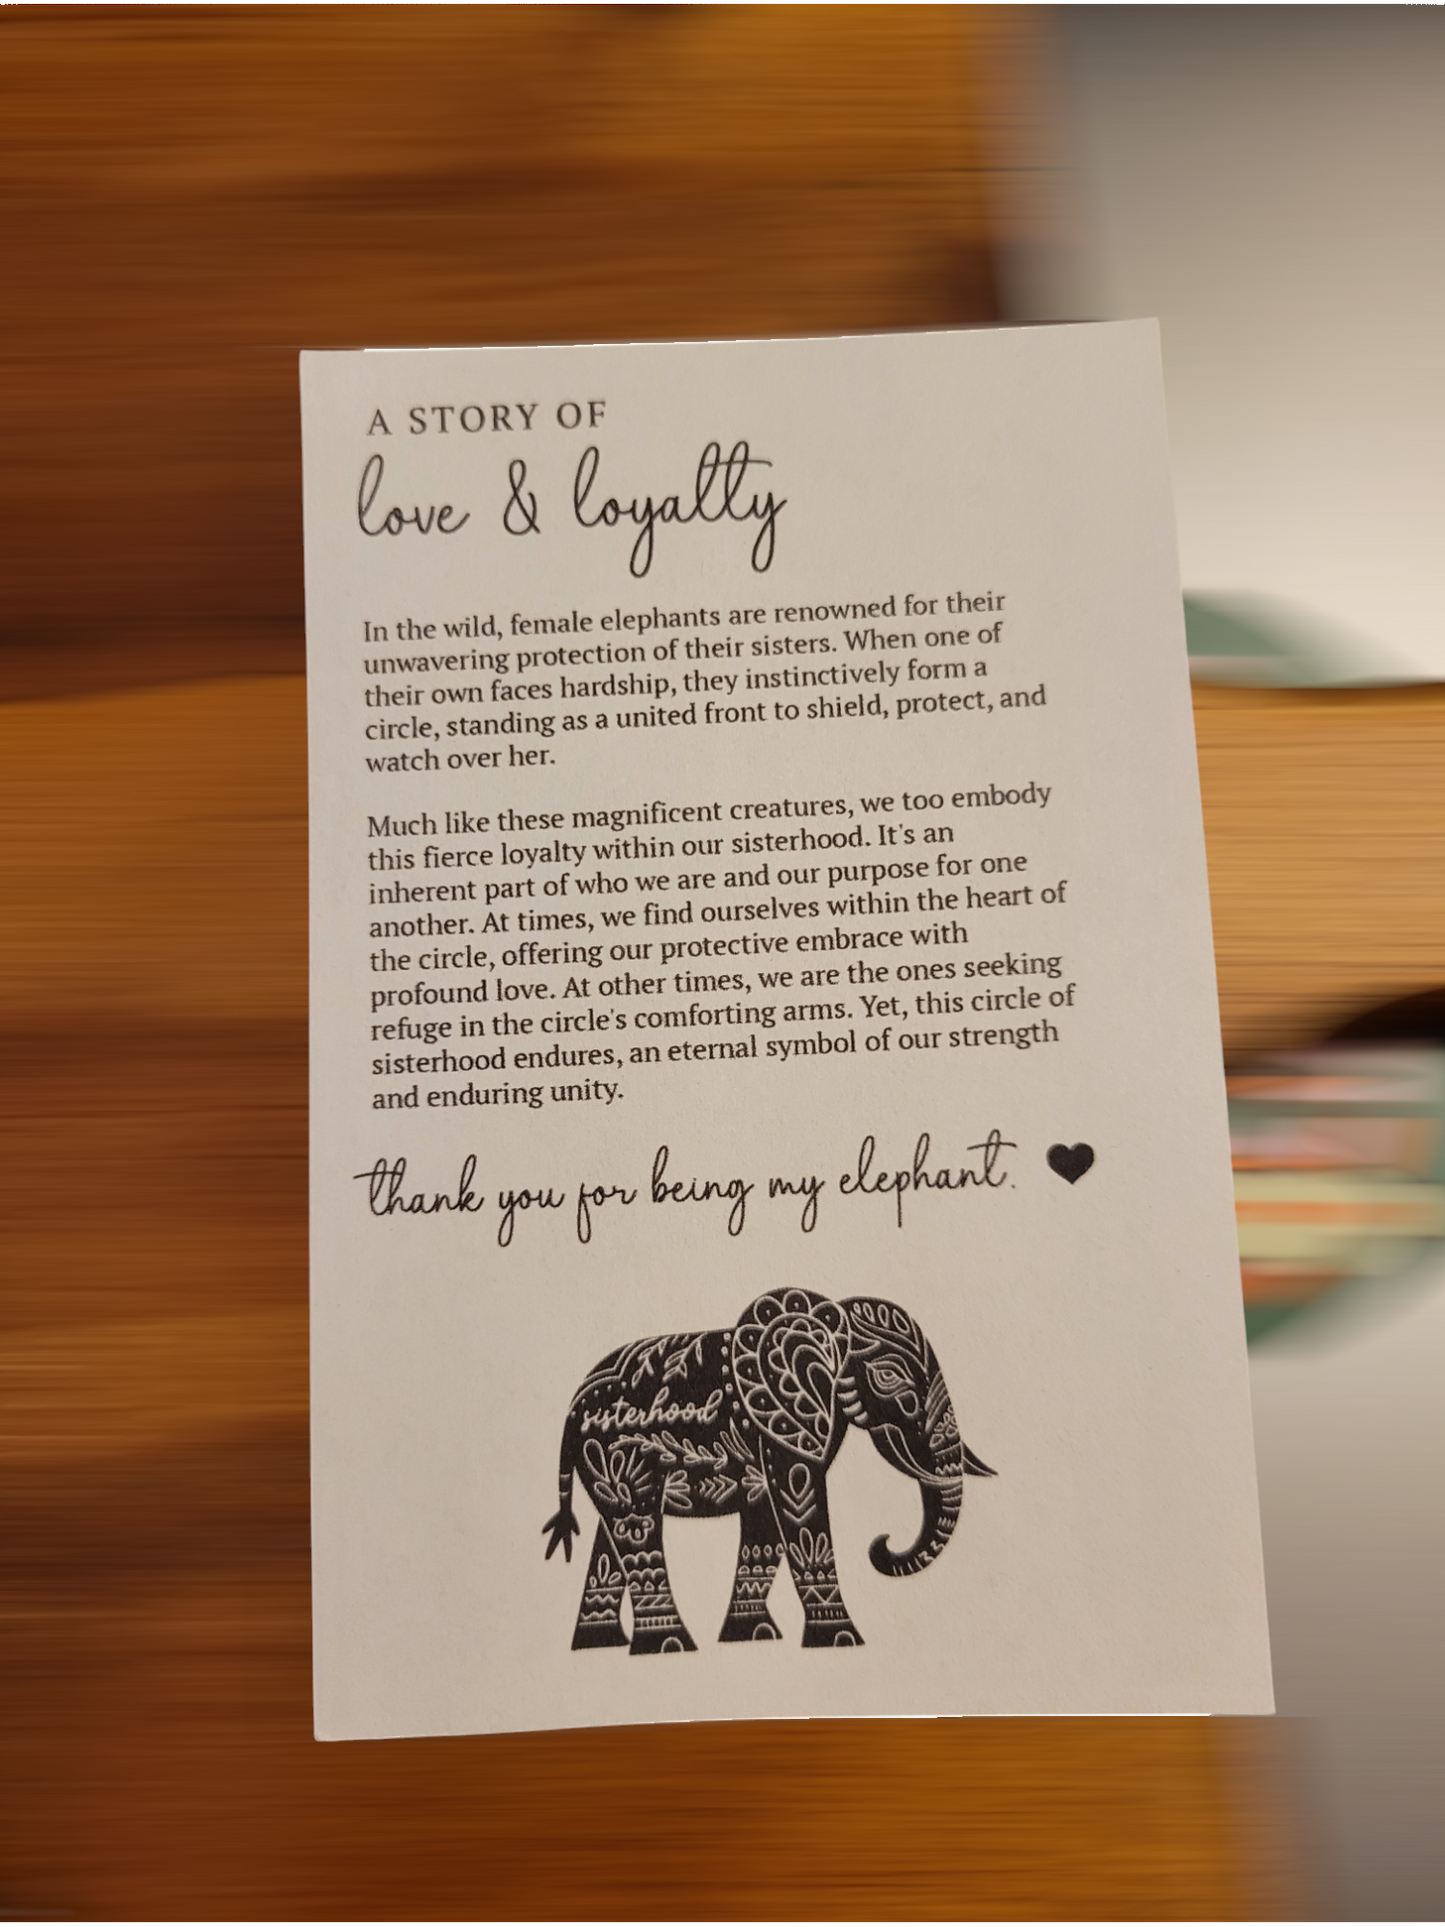 A STORY OF
love & loyalty
In the wild, female elephants are renowned for their
unwavering protection of their sisters. When one of
their own faces hardship, they instinctively form a
circle, standing as a united front to shield, protect, and
watch over her.
Much like these magnificent creatures, we too embody
this fierce loyalty within our sisterhood. It's an
inherent part of who we are and our purpose for one
another. At times, we find ourselves within the heart of
the circle, offering our protective embrace with
profound love. At other times, we are the ones seeking
refuge in the circle's comforting arms. Yet, this circle of
sisterhood endures, an eternal symbol of our strength
and enduring unity.
thank you for being my elephant.
sisterhood